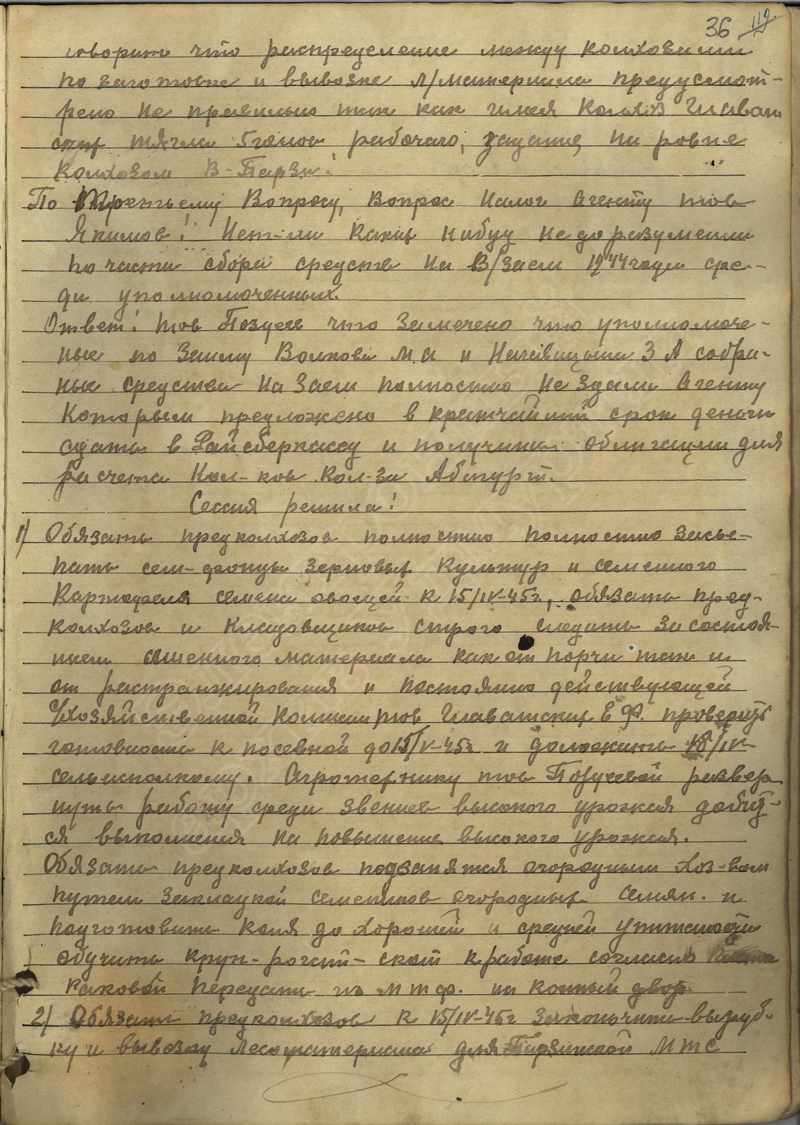 36 112
говорит что распределение между колхозами
по заготовке и вывозке л/материала предусмот-
рено не правильно так как имея колхоз Глават
ский тягла 5 голов рабочего, задание на ровне
колхозом В-Парзи!
По Третьему Вопросу, Вопрос Налог Агенту тов
Якимов! Нет-ли каких нибуд недоразумении
по части сбора средств на В/Заем 1944 года сре-
ди уполномоченных.
Ответ! тов Поздеев что замечено что уполномоче-
ные по Займу Волкова М.А и Наговицына З А собра-
ные средства на Заем полностю не здали Агенту
Которым предложено в кратчайший срок деньги
сдать в Райсберкассу и получить облигации для
расчета Кол-ков кол-за Абагурт.
Сессия решила!
1) Обязать предколхозов полностю полностю засы-
пать сем-фонды зерновых Культур и семенного
Картофеля семена овощей к 15/IV-45г, обязать пред-
колхозов и Кладовщиков строго следить за состоя-
нием семенного материала как от порчи так и
от растранжирования и постоянно действующей
С/Хозяйственной Комиси тов Главатских Е Ф. проверить
готовность к посевной до 15/IV-45г и доложить 18/IV-
сельисполкому. Агротехнику тов Поздеевой развер
нуть работу среди звеньев высокого урожая добит-
ся выполнения на повышение высокого урожая.
Обязать предколхозов подзанятся огородным хоз-вом
путем закладкой семенников огородных семян. и
подготовить коня до хорошей и средней упитаности
обучить круп-рогат-скот к работе согласно
каковой передать из МТФ. на конный двор.
2) Обязать предколхозов к 15/IV-45г закончить выруб-
ку и вывозку Лесоматериала для Парзинской МТС